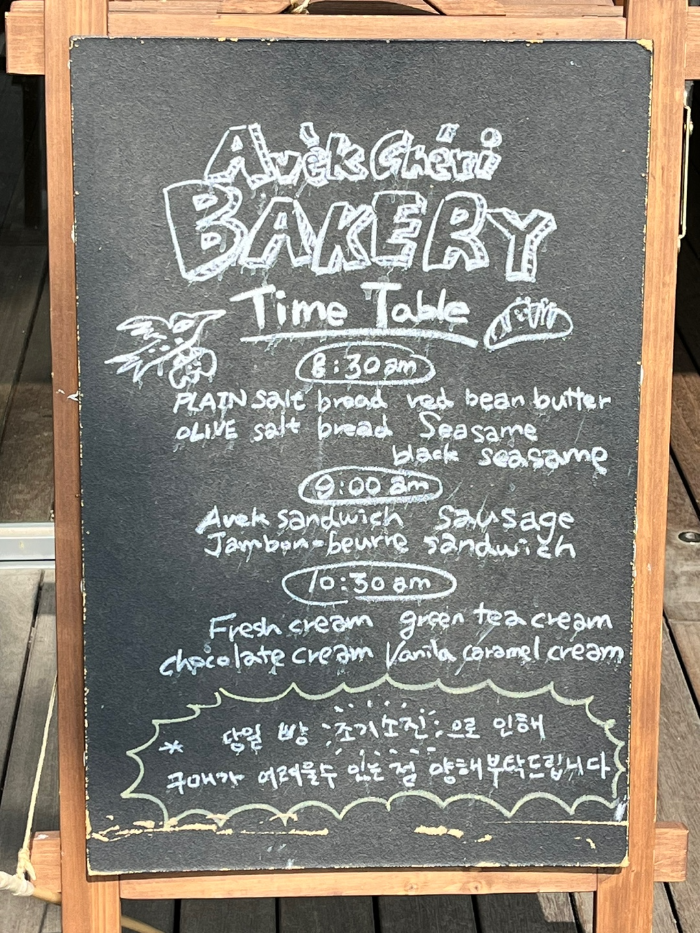 Avèk Chéri
BAKERY
Time Table
8:30 am
PLAIN salt bread red bean butter
OLIVE salt bread Seasame
black seasame
9:00 am
Avek sandwich Sausage
Jambon-beurre sandwich
10:30 am
Fresh cream green tea cream
chocolate cream Vanila caramel cream
* 당일 빵 조기소진으로 인해
구매가 어려울수 있는점 양해부탁드립니다